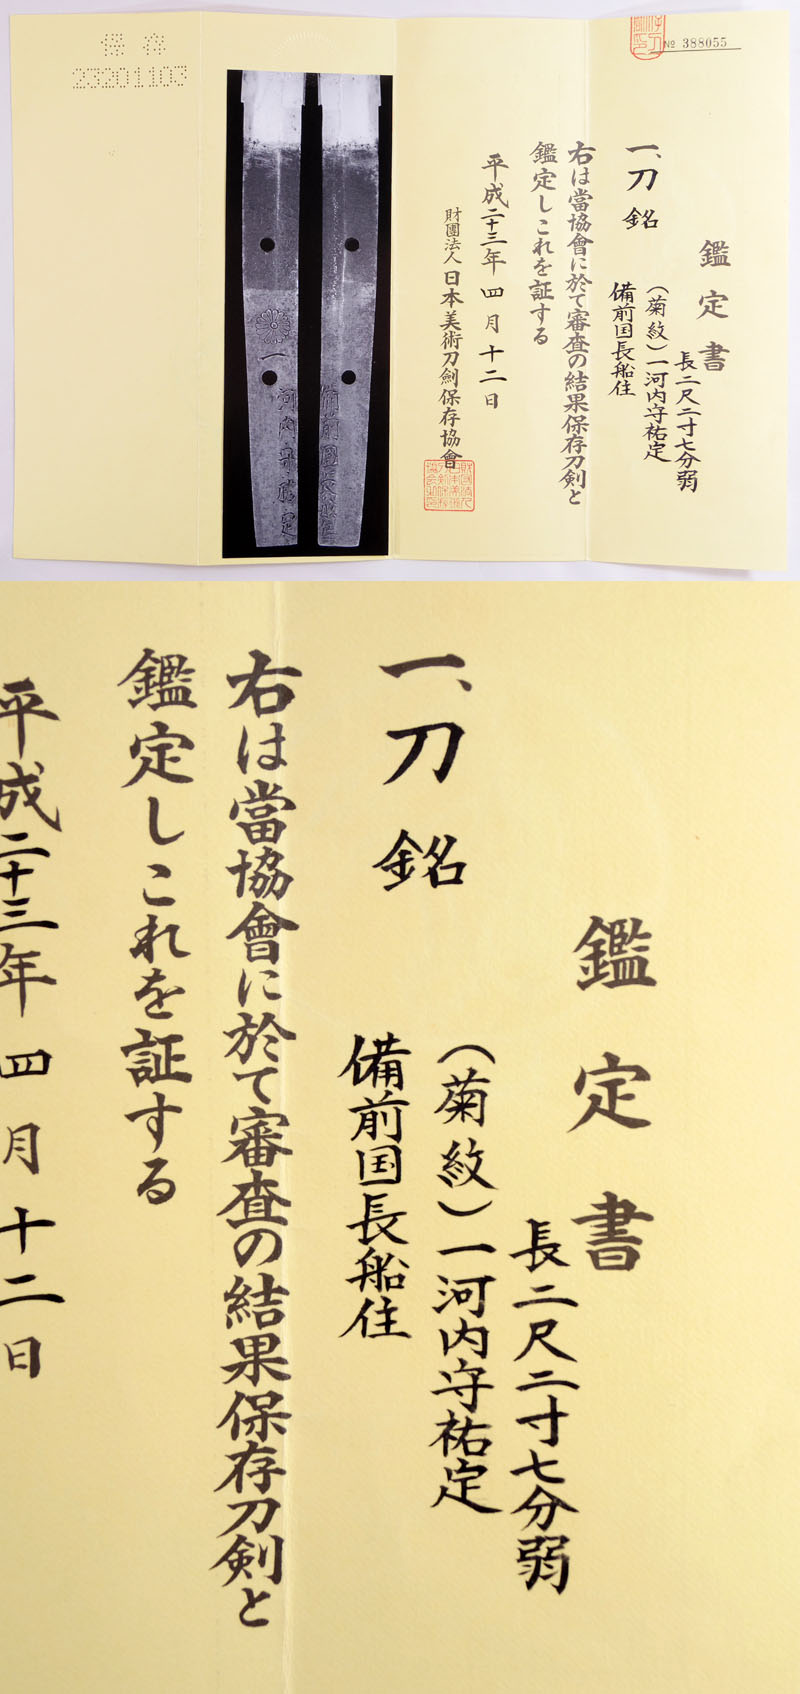 保存
23201103
№ 388055
鑑定書
長二尺二寸七分弱
一、刀 銘 (菊紋)一河内守祐定
備前国長船住
右は當協會に於て審査の結果保存刀剣と
鑑定しこれを証する
平成二十三年四月十二日
財團法人日本美術刀劍保存協會
一
河内守祐定
備前國長船住
鑑定書
長二尺二寸七分弱
一、刀 銘 (菊紋)一河内守祐定
備前国長船住
右は當協會に於て審査の結果保存刀剣と
鑑定しこれを証する
平成二十三年四月十二日